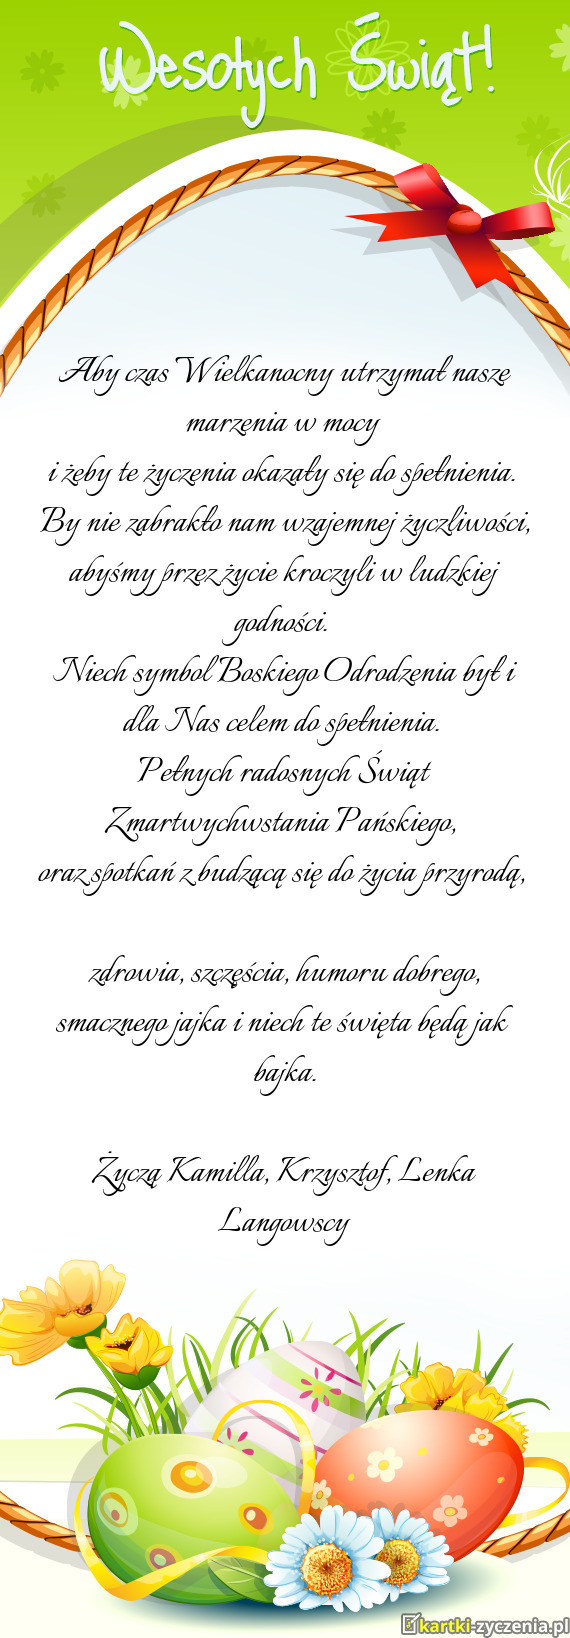 Wesołych Świąt!
Aby czas Wielkanocny utrzymał naszę
marzenia w mocy
i żeby te życzenia okazały się do spełnienia.
By nie zabrakło nam wzajemnej życzliwości,
abyśmy przez życie kroczyli w ludzkiej
godności.
Niech symbol Boskiego Odrodzenia był i
dla Nas celem do spełnienia.
Pełnych radosnych Świąt
Zmartwychwstania Pańskiego,
oraz spotkań z budzącą się do życia przyrodą,
zdrowia, szczęścia, humoru dobrego,
smacznego jajka i niech te święta będą jak
bajka.
Życzą Kamilla, Krzysztof, Lenka
Langowscy
kartki-zyczenia.pl